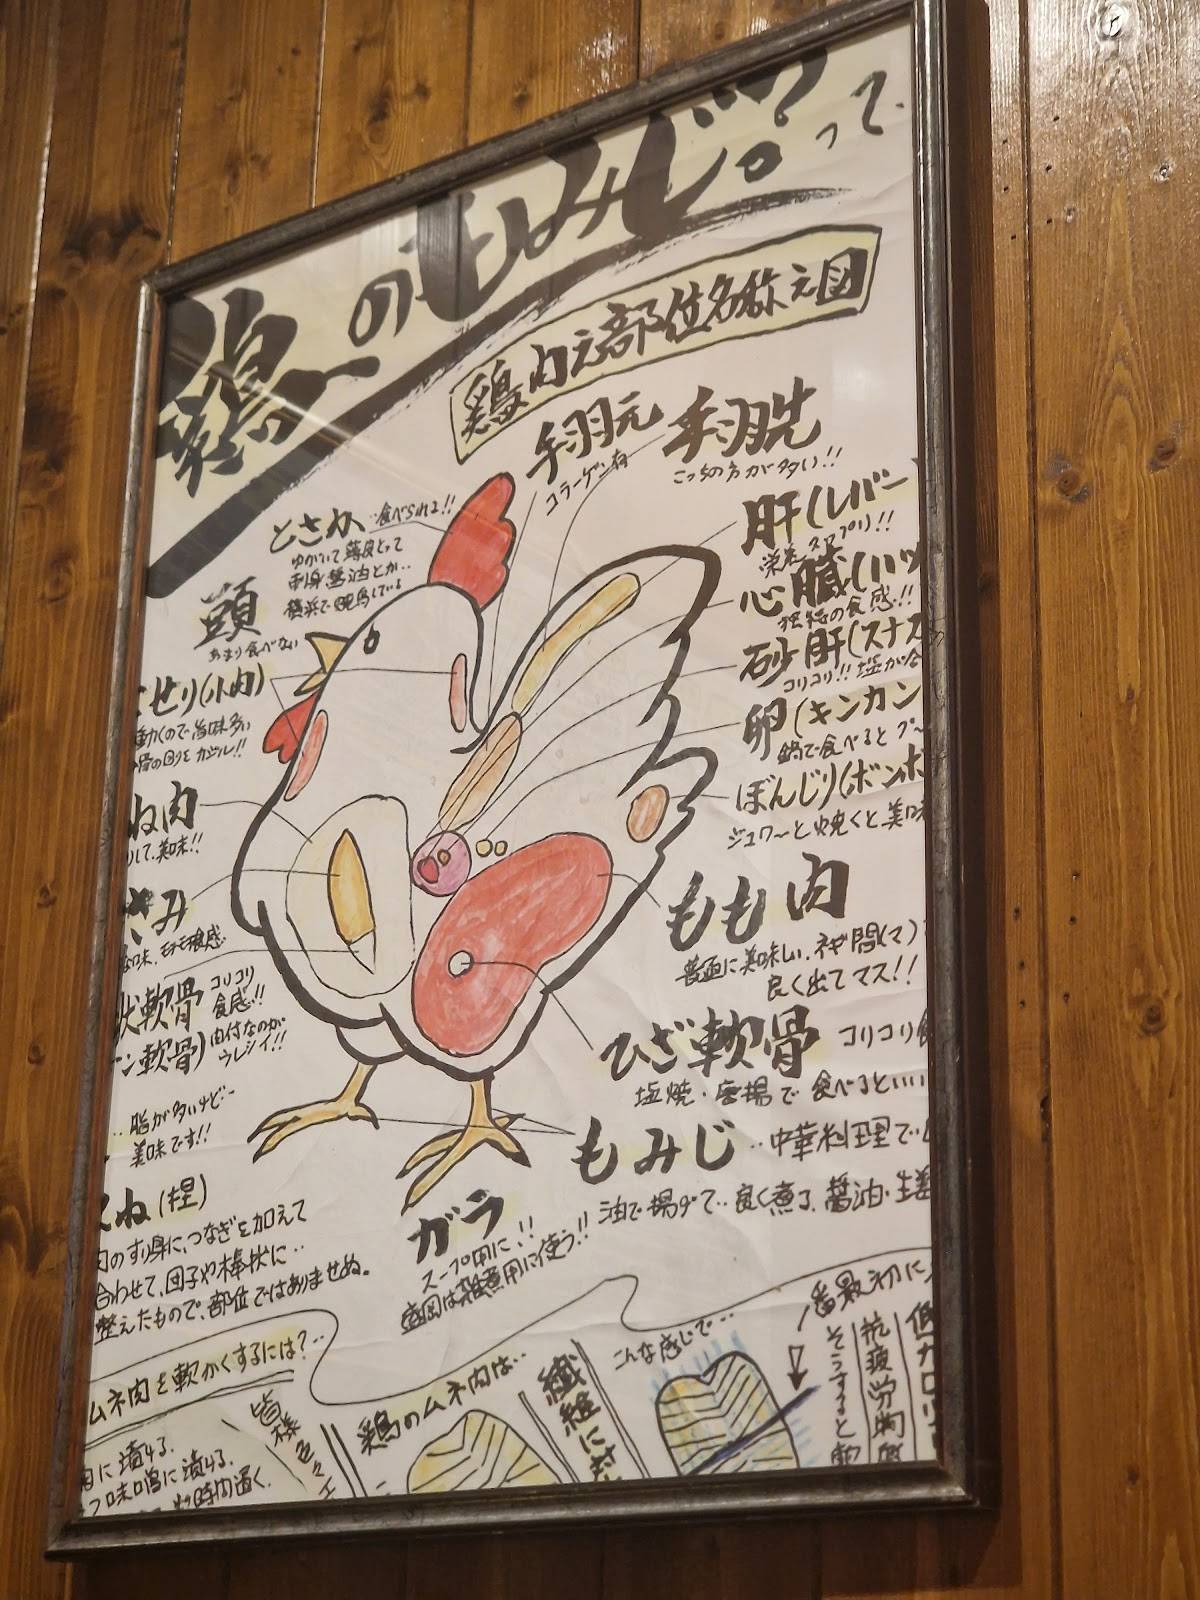 鶏のもみじ。って.
鶏肉之部位名称之図
手羽元
コラーゲン有
手羽先
こっちの方が多い!!
とさか…食べられる!!
ゆがいて薄皮とって
刺身醤油とか…
横浜で焼鳥している
頭
あまり食べない
せせり(小肉)
動くので旨味多い
骨の回りをガブル!!
ね肉
して、美味!!
さみ
軟骨
コリコリ
食感!!
ン軟骨)
肉付なのが
ウレシイ!!
脂が多いけど…
美味です!!
肝(レバー
栄養
心臓(ハツ
独特の食感!!
砂肝(スナズ
コリコリ!!塩が合
卵(キンカン
鍋で食べるとグ〜
ぼんじり(ボンボ
ジュワ〜と焼くと美味
もも肉
普通に美味しい、ネギ間(マ)
良く出てマス!!
ひざ軟骨
コリコリ食
塩焼・唐揚で食べるといい
もみじ
…中華料理で
油で揚げて…良く煮る、醤油・生姜
ガラ
スープ用に!!
盛岡は雑煮用に使う!!
くね(捏)
肉のすり身に、つなぎを加えて
合わせて、団子や棒状に…
整えたもので、部位ではありませぬ。
ムネ肉を軟かくするには?…
に漬ける.
味噌に漬ける.
時間置く.
皆様色々
鶏のムネ肉は…
繊維に
こんな感じで…
一番最初に
そうすると
抗疲労
低カロリ